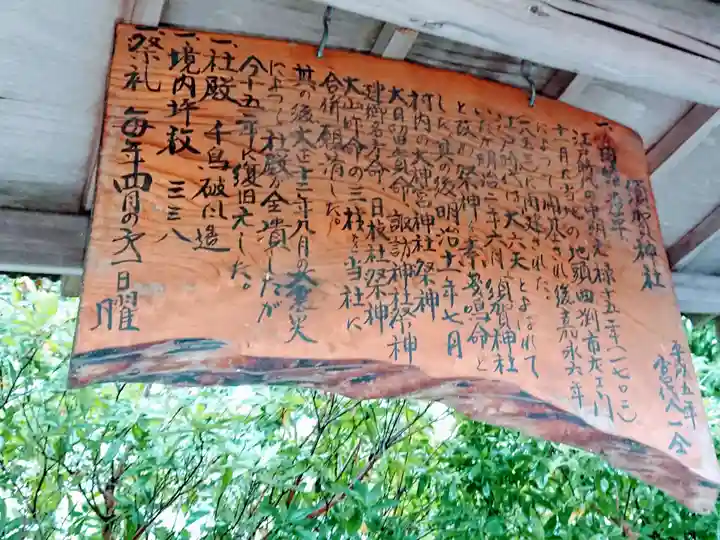 須賀神社
一、由緒沿革
江戸時代の中期元禄十五年(一七〇三)
十一月に当地の地頭田割市左エ門
によって開基され後嘉永六年
一八五三に再建された。
江戸時代は大六天とよばれて
いたが明治二年六月須賀神社
と改め祭神を素盞嗚命と
した其の後明治十一年七月
村内の大神宮神社祭神
大日留貴命、諏訪神社祭神
建御名方命、日枝社祭神
大山咋命の三柱を当社に
合併願済した。
其の後大正十二年九月の大震災
によって社殿が全潰したが
今十五年に復旧した。
一、社殿 千鳥破風造
一、境内坪数 三三八
一、祭礼 毎年四月の第一日曜
平成五年